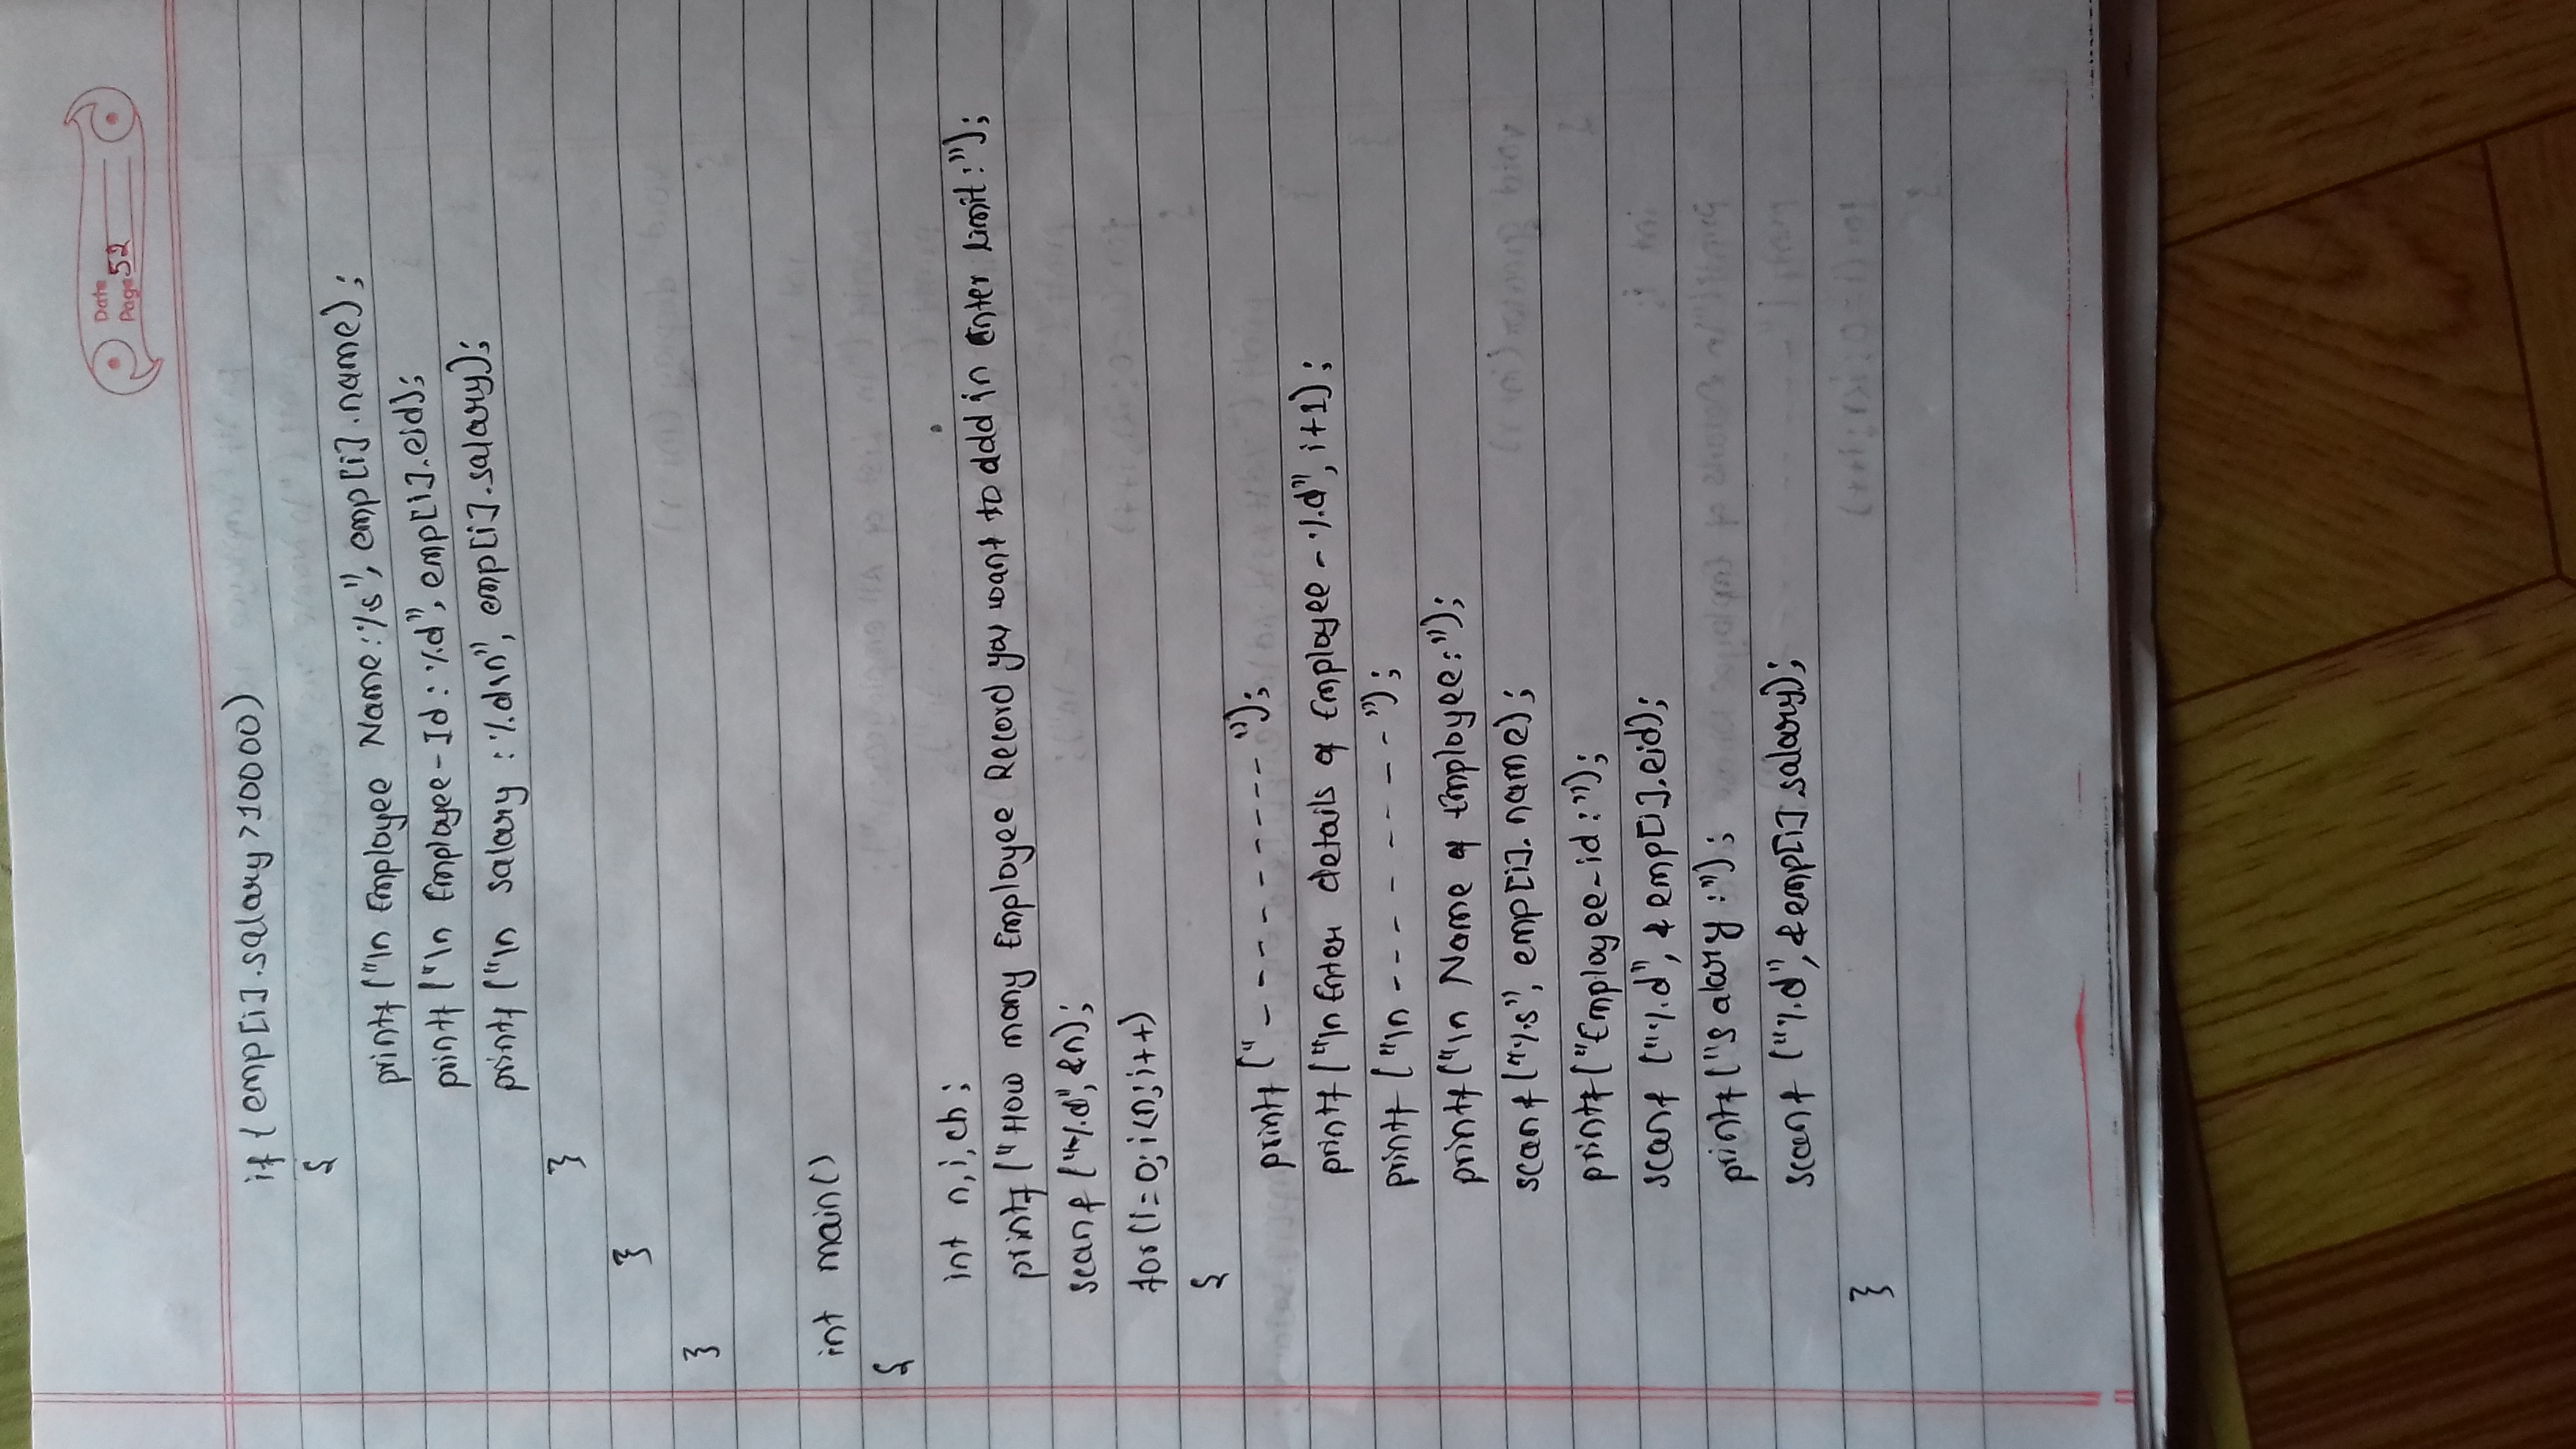 Date
Page 52
if (emp[i].salary>10000)
{
printf("\n Employee Name:%s", emp[i].name);
printf("\n Employee-Id: %d", emp[i].eid);
printf("\n salary : %d\n", emp[i].salary);
}
}
}
int main()
{
int n,i,ch;
printf("How many Employee Record you want to add in Enter Limit:");
scanf("%d", &n);
for(i=0; i<n; i++)
{
printf("---------");
printf("\nEnter details of Employee - %d", i+1);
printf("\n---------");
printf("\n Name of Employee:");
scanf("%s", emp[i].name);
printf("Employee-id:");
scanf("%d", &emp[i].eid);
printf("salary:");
scanf("%d", &emp[i].salary);
}